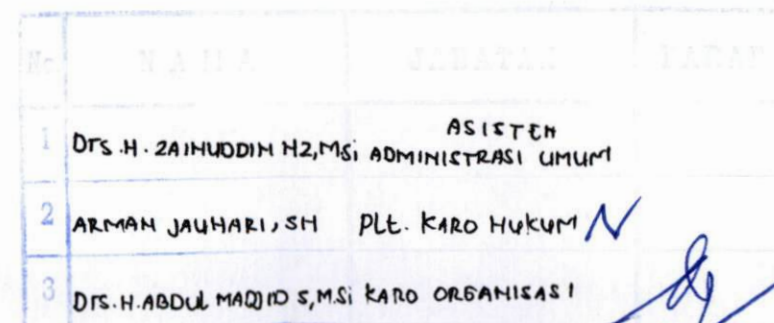 No N A M A JABATAN PARAF
ASISTEN
1 Drs. H. ZAINUDDIN HZ, MSi ADMINISTRASI UMUM
2 ARMAN JAUHARI, SH Plt. KARO HUKUM
3 Drs. H. ABDUL MADJID S, M.Si KARO ORGANISASI